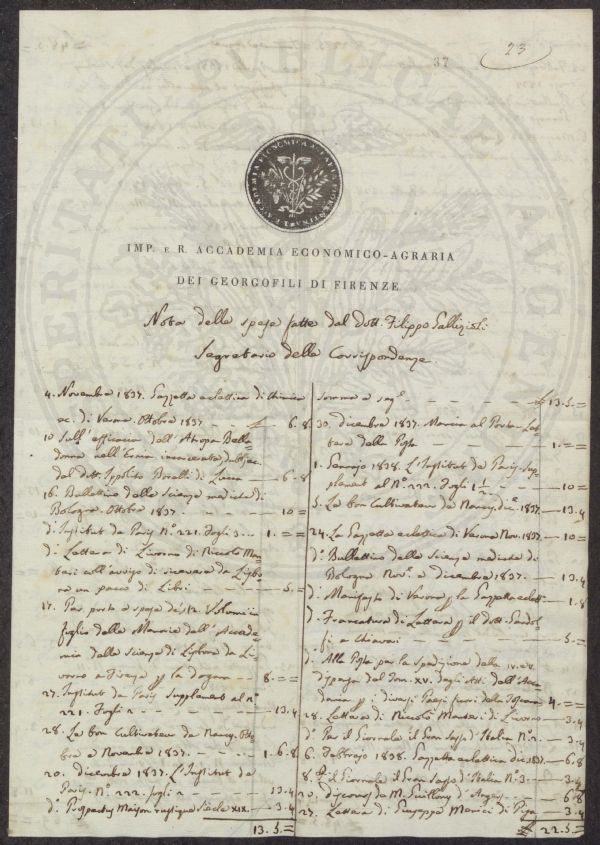 37
23
PERITATI PUBLICAE AUGENDAE
IMP. E R. ACCADEMIA ECONOMICO-AGRARIA
DEI GEORGOFILI DI FIRENZE
Nota delle spese fatte dal Dott. Filippo Gallizioli
Segretario delle Corrispondenze.
4. Novembre 1837. Gazzetta eclettica di Chimica
ec. di Verona. Ottobre 1837 - - 6. 8
10 Sull' efficacia dell' Atropa Bella
donna nell' Ernia incarcerata
del Dott. Ippolito Borelli di Lucca - - 6. 8
16. Bullettino delle Scienze mediche di
Bologna. Ottobre 1837. - - 10 =
d.° Institut de Paris N.° 221. fogli 3... 1. = =
d.° Lettera di Livorno di Niccolò Man-
teri coll' avviso di ricevere da Lisbo-
na un pacco di Libri - - 5. =
17. Per porto e spese de' 12. Volumi in
foglio delle Memorie dell' Accade-
mia delle Scienze di Lisbona da Li-
vorno a Firenze p la dogana - - 8. = =
27. Institut de Paris supplement al n.°
221. fogli 2 - - 13. 4
28. Le bon Cultivateur de Nancy. Otto-
bre e Novembre 1837. - - 1. 6. 8
20. dicembre 1837. L'Institut de
Paris. N.° 222. fogli 2 - - 13. 4
d.° Prospectus Maison rustique Siècle XIX. - 3. 4
13. 5. =
Somma e segue - - 13. 5. =
30. dicembre 1837. Mancia al Porta-Let-
tere della Posta - - 1. = =
1. Gennajo 1838. L'Institut de Paris. Sup-
plement al N.° 222. fogli 1 1/2 - - 10 =
5. Le bon Cultivateur de Nancy. dic.e 1837 - 13. 4
24. La Gazzetta eclettica di Verona Nov. 1837. - 10 =
d.° Bullettino delle Scienze mediche di
Bologna Nov.e e dicembre 1837. - - 13. 4
d.° Manifesto di Verona p la Gazzetta eclett. - 1. 8
d.° Francatura di Lettera p il dott. Gandol-
fi a Chiavari - - 5. =
d.° Alla Posta per la spedizione delle IV. e V.
dispense del Tom. XV. degli Atti dell' Acca-
demia p i diversi Paesi fuori della Toscana 4. = =
28. Lettera di Niccolò Manteri di Livorno - 3. 4
d.° Per il Giornale il Gran Sasso d'Italia N.° 2. - 3. 4
6. Febbrajo 1838. Gazzetta eclettica dic. 1837. - 6. 8
8. p il Giornale il Gran Sasso d'Italia N.° 3. - 3. 4
20. discorso de M. Guillory d'Angers - - 6. 8
27. Lettera di Giuseppe Manici di Pisa - 3. 4
22. 5. =